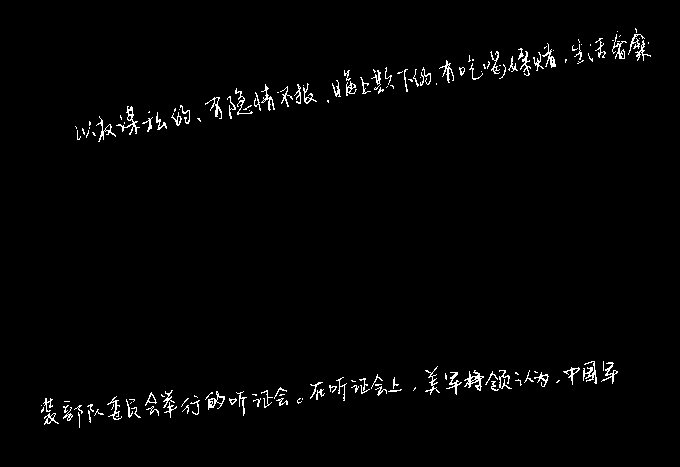 以权谋私的、有隐情不报、瞒上欺下的、有吃喝嫖赌、生活奢糜
装部队委员会举行的听证会。在听证会上，美军将领认为，中国军